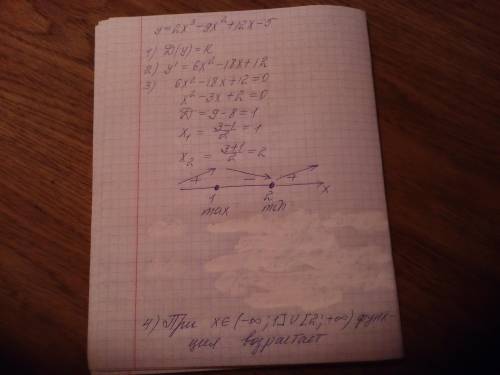 y=2x³-9x²+12x-5
1) D(y)=R
2) y' = 6x²-18x+12
3) 6x²-18x+12=0
x²-3x+2=0
D=9-8=1
x₁ = (3-1)/2 = 1
x₂ = (3+1)/2 = 2
+ - +
1 2 x
max min
4) При x∈(-∞;1]∪[2;+∞) функ-
ция возрастает